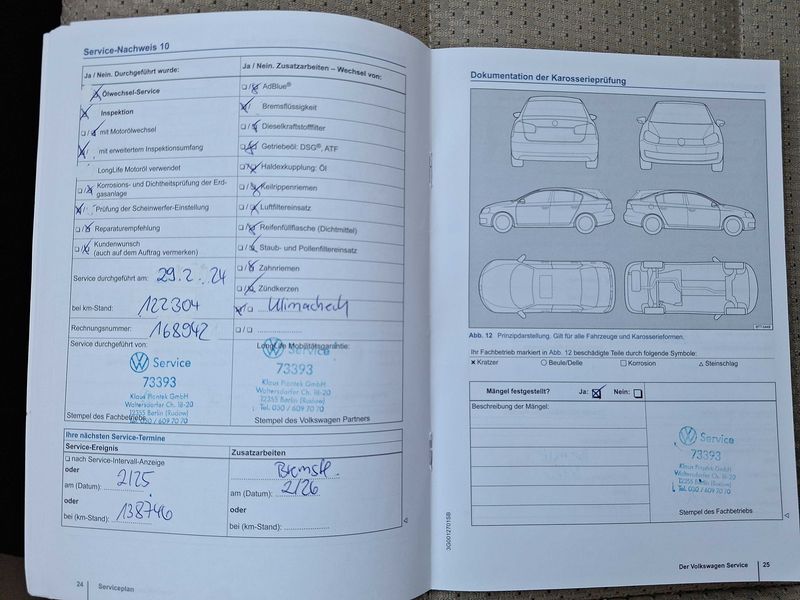 Service-Nachweis 10
Ja / Nein. Durchgeführt wurde:
Ölwechsel-Service
Inspektion
mit Motorölwechsel
mit erweitertem Inspektionsumfang
LongLife Motoröl verwendet
Korrosions- und Dichtheitsprüfung der Erd-
gasanlage
Prüfung der Scheinwerfer-Einstellung
Reparaturempfehlung
Kundenwunsch
(auch auf dem Auftrag vermerken)
Service durchgeführt am: 29.2.24
bei km-Stand: 122304
Rechnungsnummer: 168942
Service durchgeführt von:
Service
73393
Klaus Piontek GmbH
Waltersdorfer Ch. 18-20
12355 Berlin (Rudow)
Tel. 030 / 609 70 70
Stempel des Fachbetriebs
Ja / Nein. Zusatzarbeiten – Wechsel von:
AdBlue®
Bremsflüssigkeit
Dieselkraftstofffilter
Getriebeöl: DSG®, ATF
Haldexkupplung: Öl
Keilrippenriemen
Luftfiltereinsatz
Reifenfüllflasche (Dichtmittel)
Staub- und Pollenfiltereinsatz
Zahnriemen
Zündkerzen
Klimacheck
LongLife Mobilitätsgarantie:
Service
73393
Klaus Piontek GmbH
Waltersdorfer Ch. 18-20
12355 Berlin (Rudow)
Tel. 030 / 609 70 70
Stempel des Volkswagen Partners
Ihre nächsten Service-Termine
Service-Ereignis
nach Service-Intervall-Anzeige
oder
am (Datum): 2/25
oder
bei (km-Stand): 138746
Zusatzarbeiten
Bremsfl.
am (Datum): 2/26
oder
bei (km-Stand):
24 Serviceplan
Dokumentation der Karosserieprüfung
Abb. 12 Prinzipdarstellung. Gilt für alle Fahrzeuge und Karosserieformen.
Ihr Fachbetrieb markiert in Abb. 12 beschädigte Teile durch folgende Symbole:
× Kratzer ○ Beule/Delle □ Korrosion △ Steinschlag
Mängel festgestellt? Ja: Nein:
Beschreibung der Mängel:
Service
73393
Klaus Piontek GmbH
Waltersdorfer Ch. 18-20
12355 Berlin (Rudow)
Tel. 030 / 609 70 70
Stempel des Fachbetriebs
3G0012701SB
Der Volkswagen Service 25